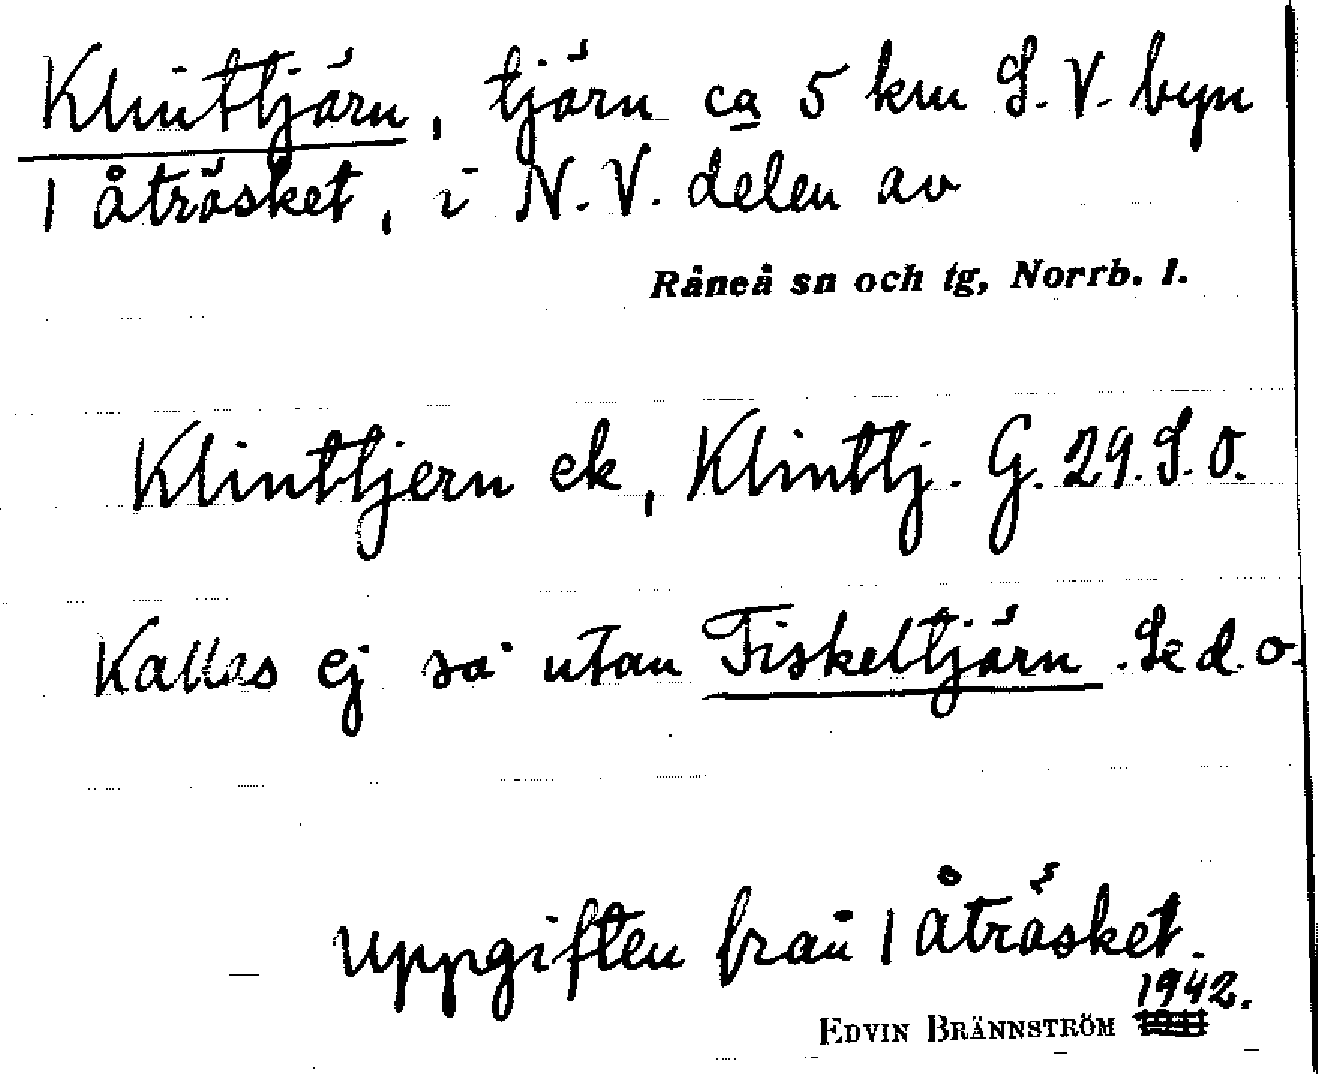 Klinttjärn, tjärn ca 5 km S.V. byn
1 åträsket, i N.V. delen av
Råneå sn och tg, Norrb. l.
Klinttjern ek, Klinttj. G. 29. S.O.
Kallas ej så utan Fiskeltjärn. Se d.o.
Uppgiften från 1 åträsket.
1942.
EDVIN BRÄNNSTRÖM